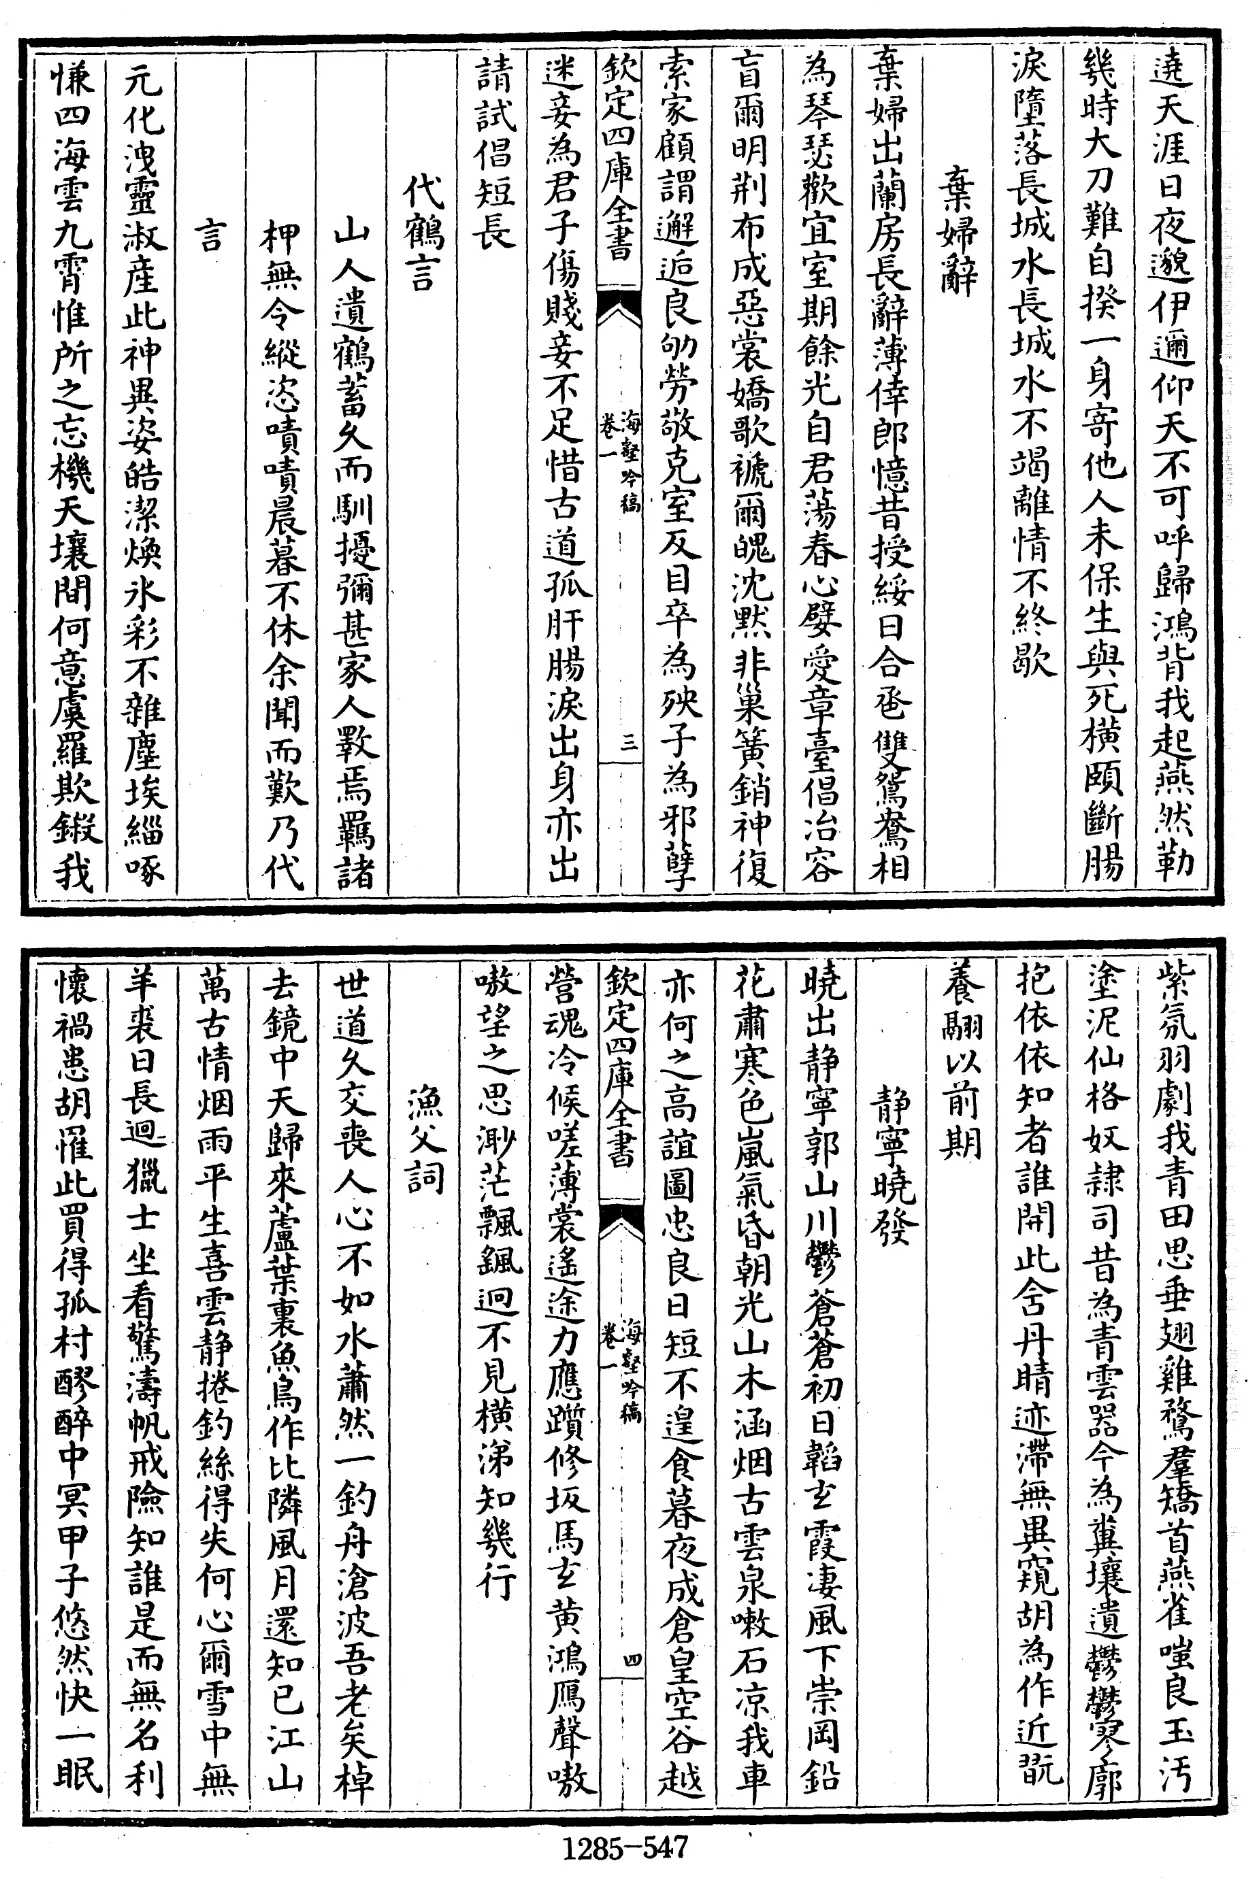 遶天涯日夜邈伊邇仰天不可呼歸鴻背我起燕然勒
幾時大刀難自揆一身寄他人未保生與死橫頤斷腸
淚墮落長城水長城水不竭離情不終歇
棄婦辭
棄婦出蘭房長辭薄倖郎憶昔授綏日合巹雙鴛鴦相
為琴瑟歡宜室期餘光自君蕩春心嬖愛章臺倡冶容
盲爾明荆布成惡裳嬌歌褫爾魄沈黙非巢簧銷神復
索家顧謂邂逅良劬勞敬克室反目卒為殃子為邪孽
欽定四庫全書
海壑吟稿
卷一
三
迷妾為君子傷賤妾不足惜古道孤肝腸淚出身亦出
請試倡短長
代鶴言
山人遺鶴蓄久而馴擾彌甚家人斁焉羈諸
柙無令縱恣嘖嘖晨暮不休余聞而歎乃代
言
元化洩靈淑産此神異姿皓潔煥氷彩不雜塵埃緇啄
慊四海雲九霄惟所之忘機天壤間何意虞羅欺鎩我
紫氛羽劇我青田思垂翅雞鶩羣矯首燕雀嗤良玉汚
塗泥仙格奴隸司昔為青雲器今為糞壤遺鬱鬱寥廓
抱依依知者誰開此含丹睛迹滯無異窺胡為作近翫
養翮以前期
静寧曉發
曉出静寧郭山川鬱蒼蒼初日韜玄霞凄風下崇岡鉛
花肅寒色嵐氣昏朝光山木涵烟古雲泉嗽石凉我車
亦何之高誼圖忠良日短不遑食暮夜成倉皇空谷越
欽定四庫全書
海壑吟稿
卷一
四
營魂冷候嗟薄裳遙途力應躓修坂馬玄黄鴻鴈聲嗷
嗷望之思渺茫飄颻迥不見横涕知幾行
漁父詞
世道久交喪人心不如水蕭然一釣舟滄波吾老矣棹
去鏡中天歸來蘆葉裏魚鳥作比隣風月還知已江山
萬古情烟雨平生喜雲静捲釣絲得失何心爾雪中無
羊裘日長迴獵士坐看驚濤帆戒險知誰是而無名利
懷禍患胡罹此買得孤村醪醉中冥甲子悠然快一眠
1285-547